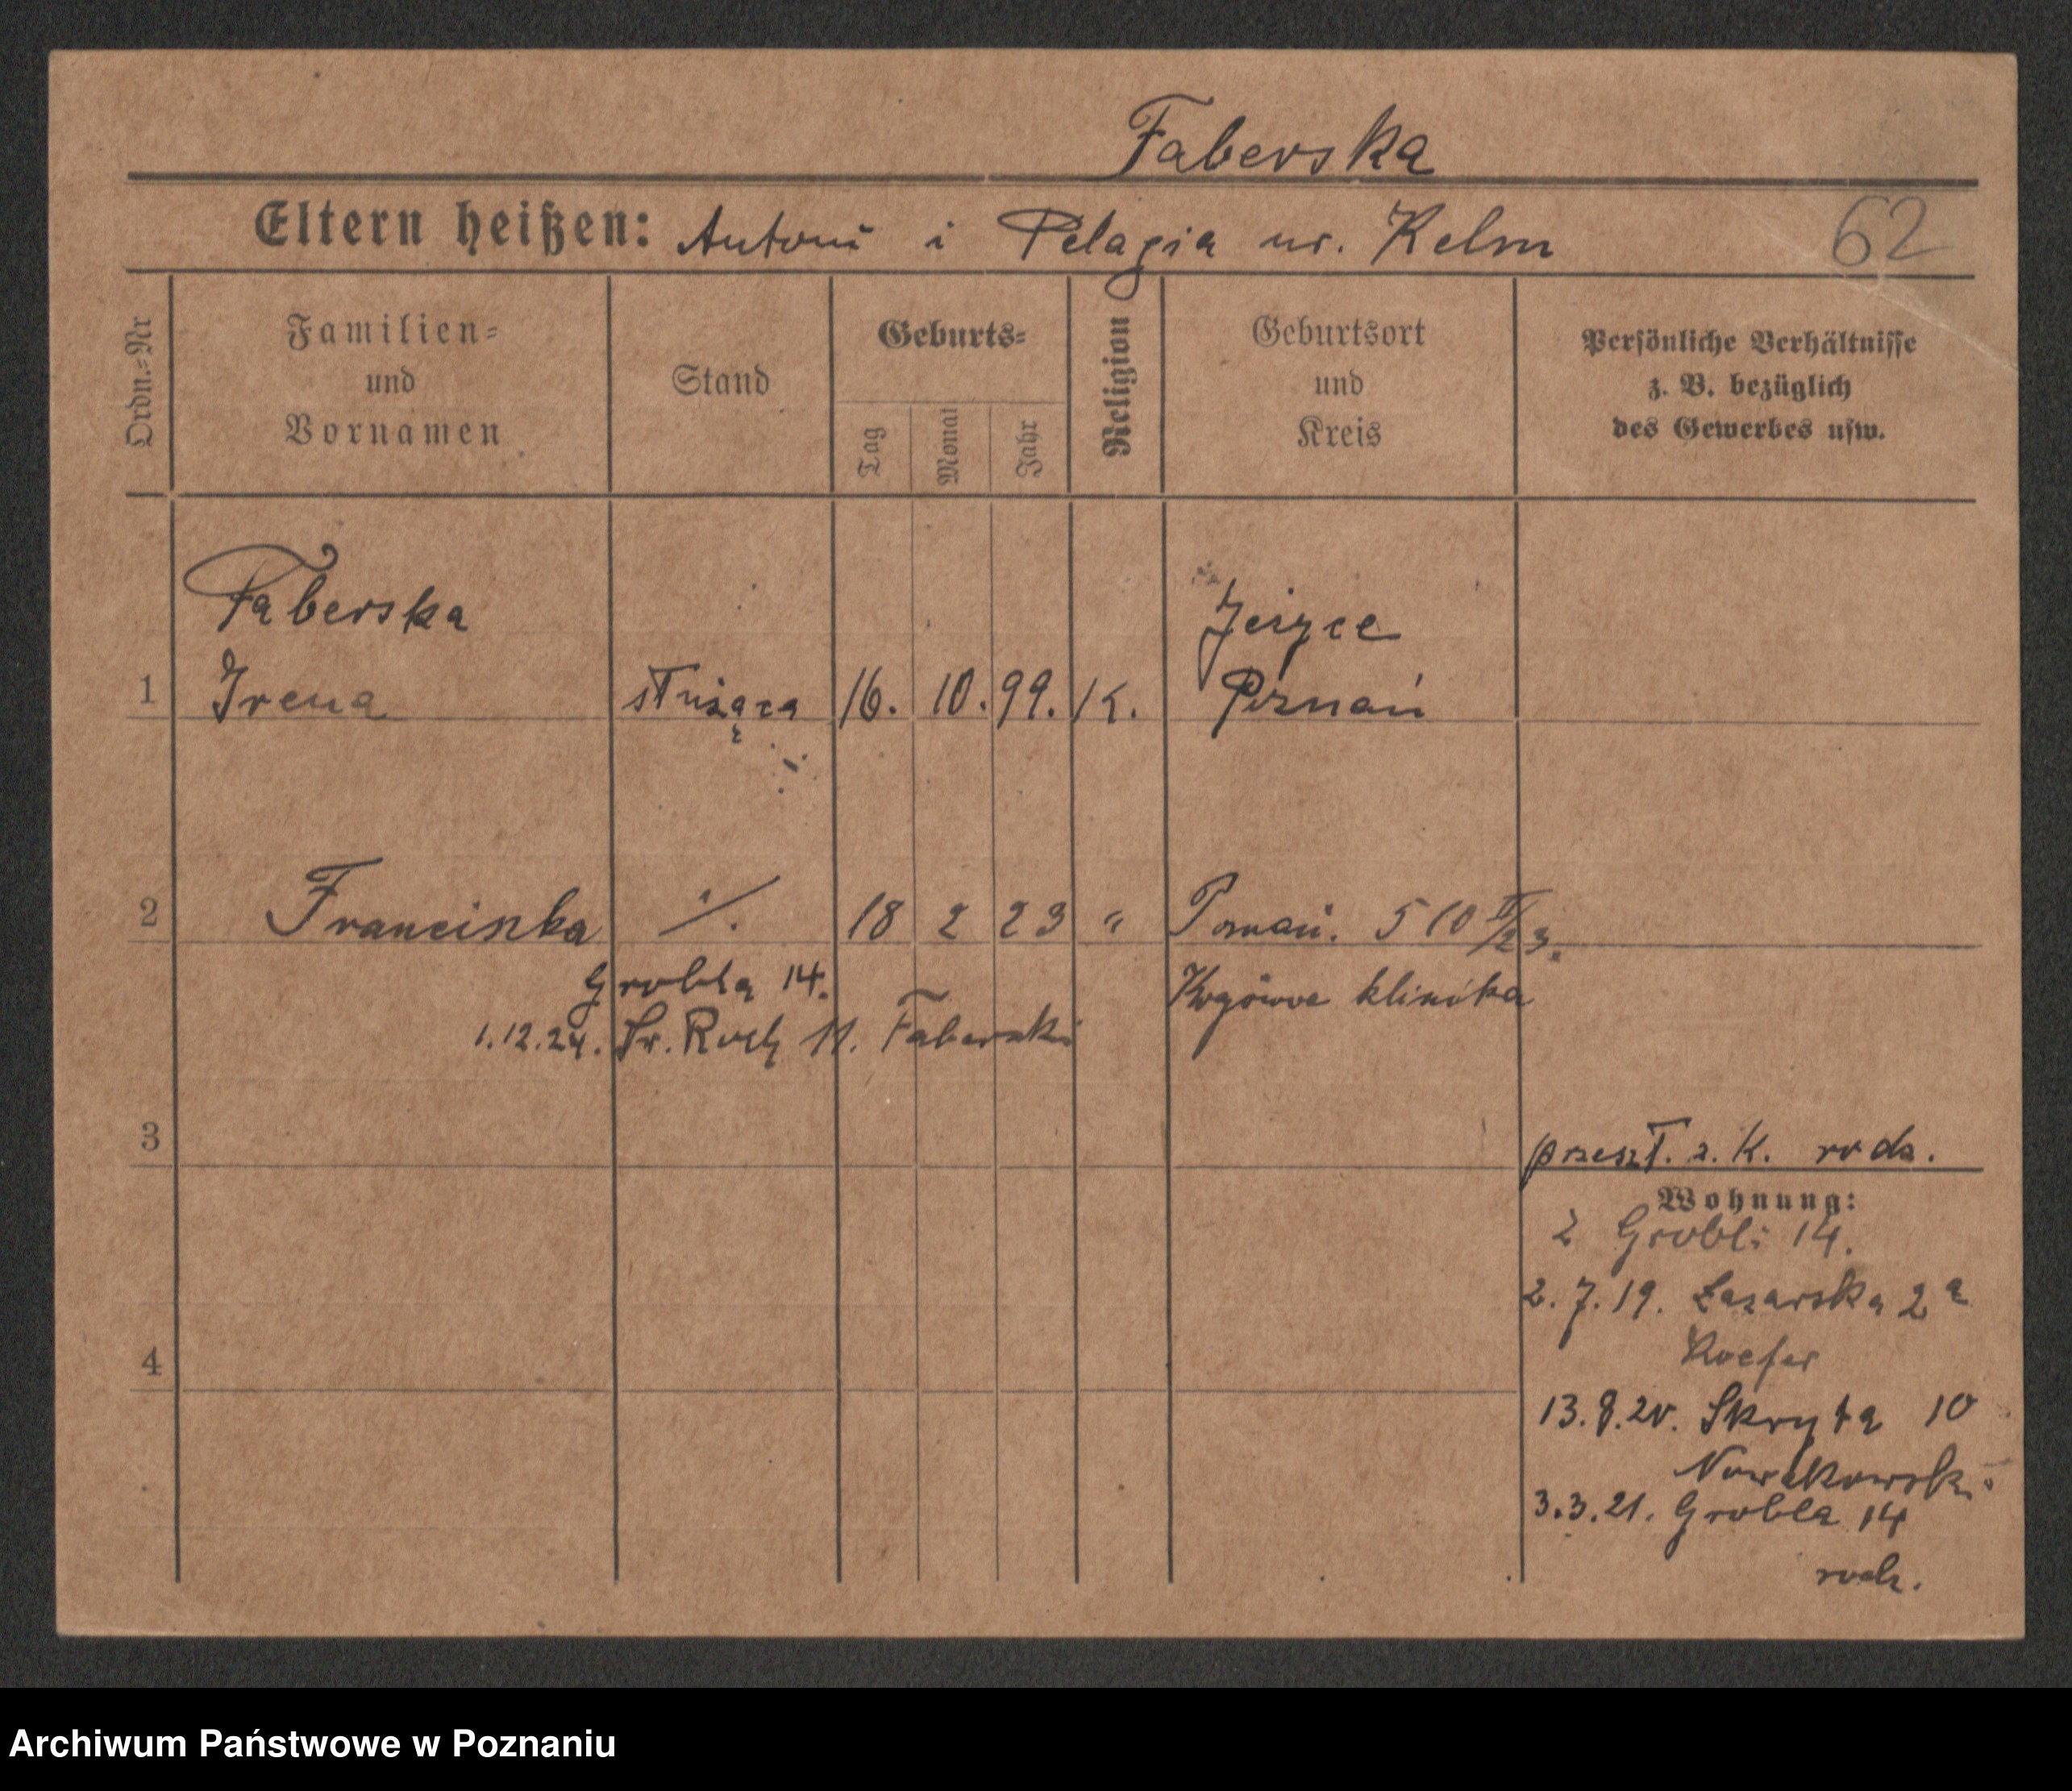 Faberska
Eltern heißen: Antoni i Pelagia ur. Kelm
62
Ordn.=Nr
Familien=
und
Vornamen
Stand
Geburts=
Tag
Monat
Jahr
Religion
Geburtsort
und
Kreis
Persönliche Verhältnisse
z. B. bezüglich
des Gewerbes usw.
Faberska
Jeżyce
1 Irena służąca 16. 10. 99. K. Poznań
2 Franciszka ./. 18 2 23 " Poznań. 510 II/23.
Grobla 14.
klinika
1.12.24. Św. Roch 11. Faberski
3
przeszł. z. K. rodz.
Wohnung:
2 Grobli 14.
2.7.19. Łazarska 2a
4
13.8.20. Skryta 10
Nowakowski
3.3.21. Grobla 14
rodz.
Archiwum Państwowe w Poznaniu